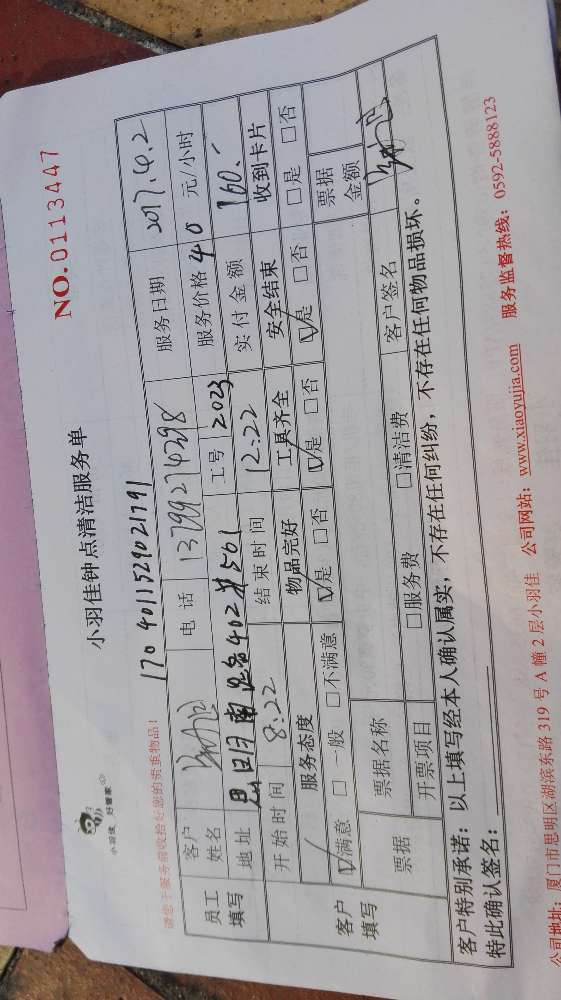 小羽佳 好管家
小羽佳钟点清洁服务单
NO.0113447
请您于服务前收拾好您的贵重物品!
1704011529021791
员工填写
客户姓名
电话 13799274398
服务日期 2017.4.2
地址 402#501
工号 2023
服务价格 40 元/小时
开始时间 8:22
结束时间 12:22
实付金额 160.-
客户填写
服务态度
物品完好
工具齐全
安全结束
收到卡片
☑满意 □一般 □不满意
☑是 □否
☑是 □否
☑是 □否
□是 □否
票据
票据名称
票据金额
开票项目
□服务费
□清洁费
客户签名
客户特别承诺:以上填写经本人确认属实,不存在任何纠纷,不存在任何物品损坏。
特此确认签名:
公司地址:厦门市思明区湖滨东路319号A幢2层小羽佳 公司网站:www.xiaoyujia.com 服务监督热线:0592-5888123